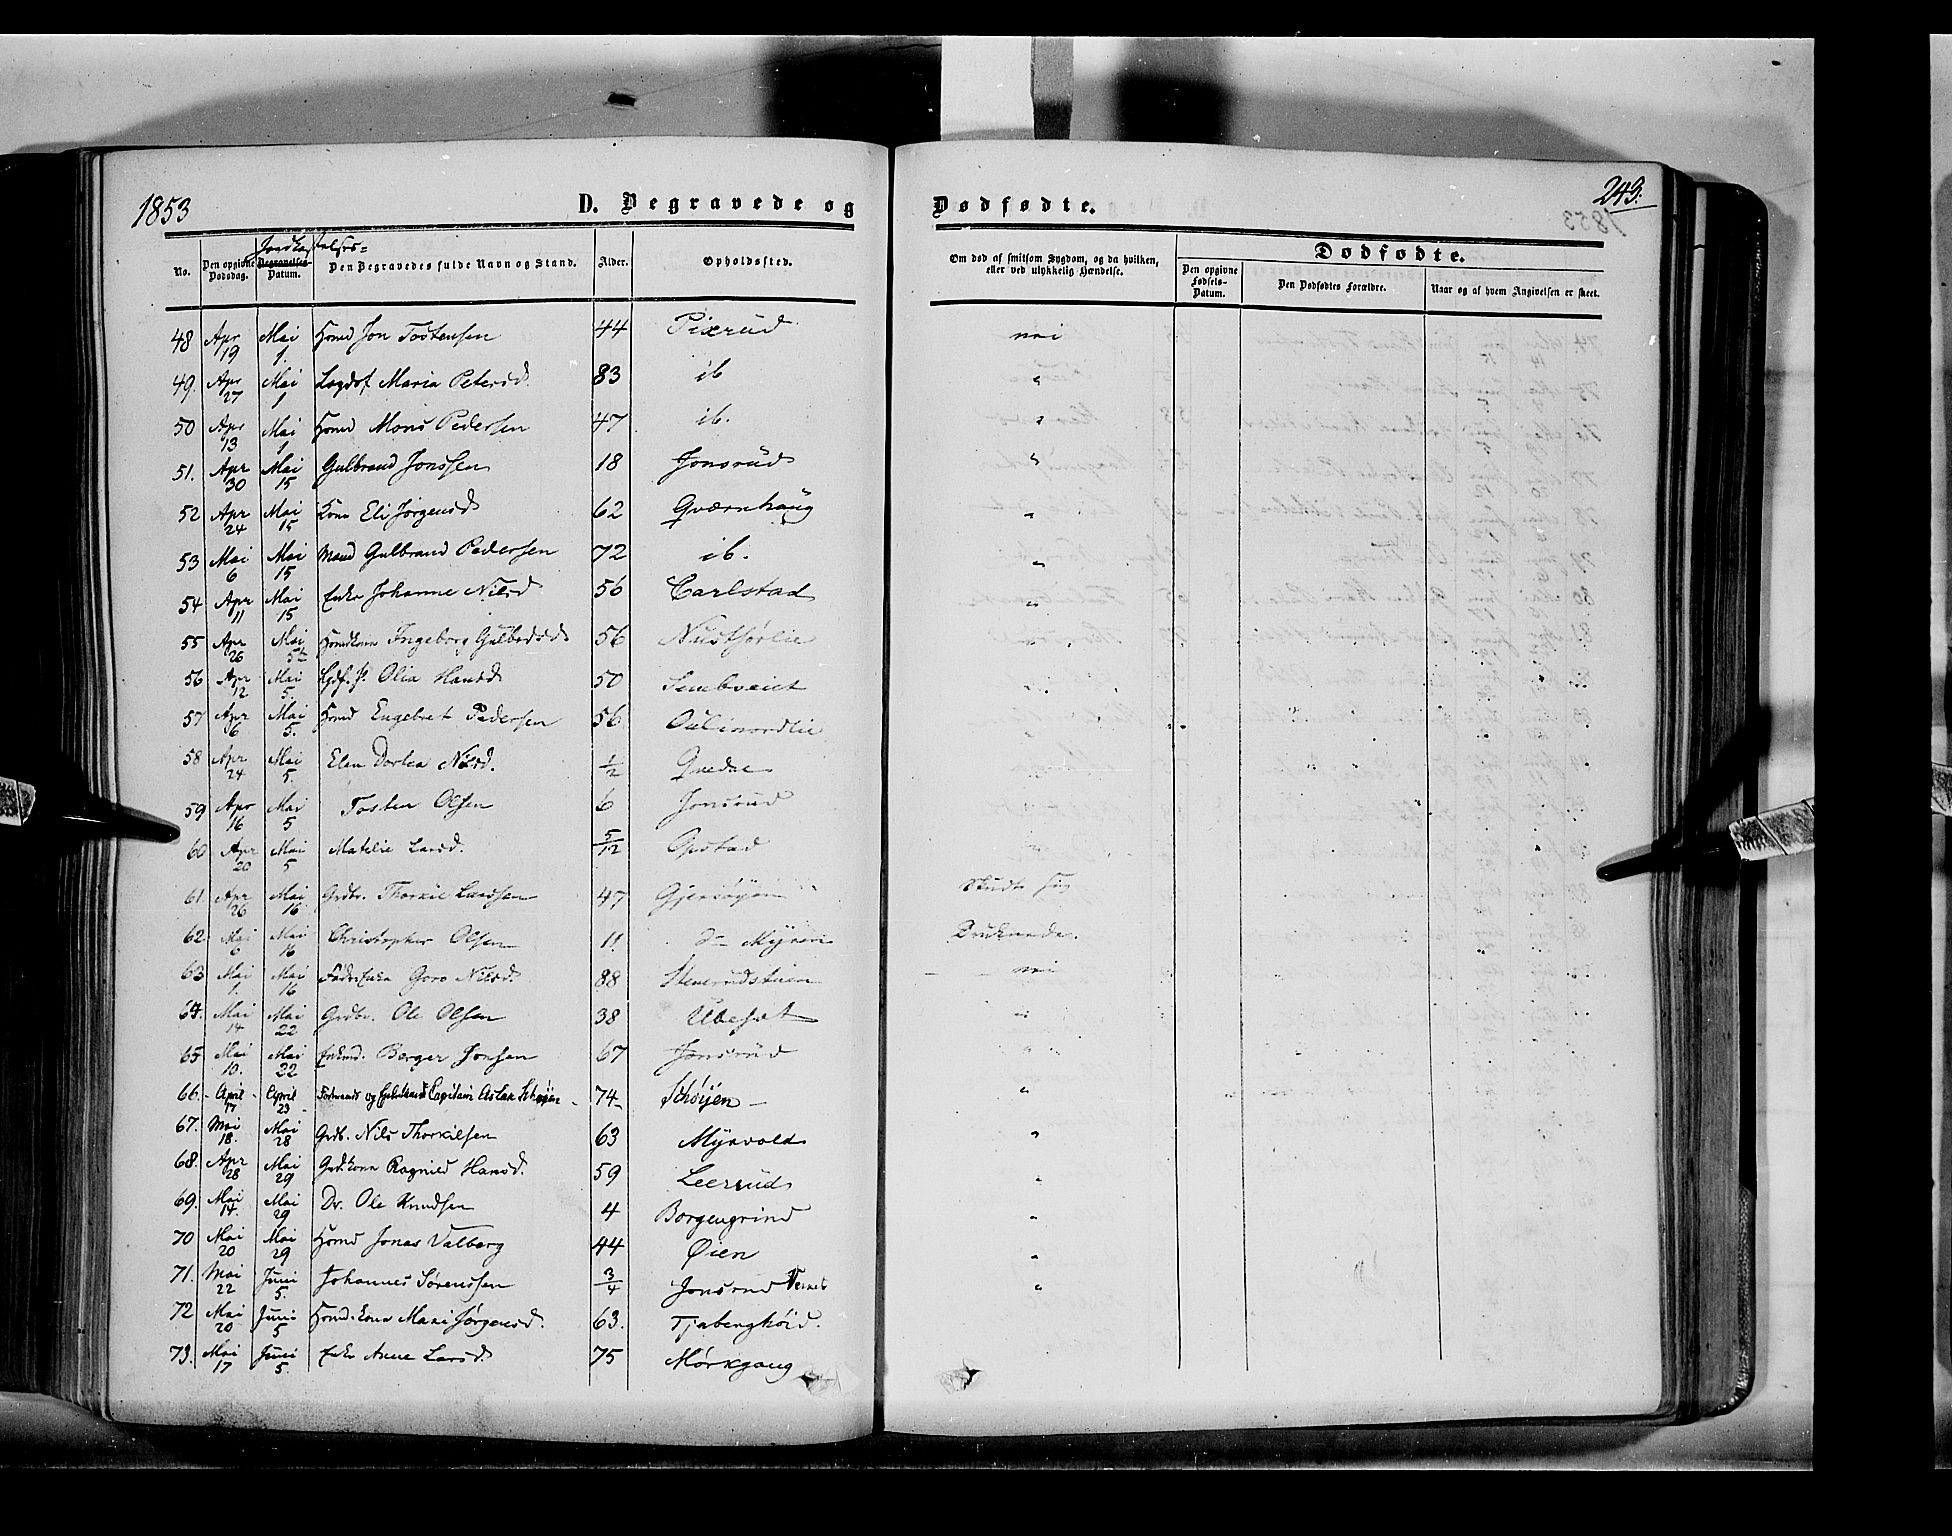 1853
D. Begravede og Dødfødte.
243.
No. Den opgivne Dødsdag. Jordkastelses= Begravelses Datum. Den Begravedes fulde Navn og Stand. Alder. Opholdssted. Om død af smitsom Sygdom, og da hvilken, eller ved ulykkelig Hændelse. Dødfødte. Den opgivne Fødsels-Datum. Den Dødfødtes Forældre. Naar og af hvem Angivelsen er skeet.
48 Apr 19 Mai 1. Huusmd Jon Tostensen 44 Pixrud nei
49. Apr 27 Mai 1 Lægdsf Maria Petersd. 83 ib "
50 Apr 13 Mai 1 Huusmd Mons Pedersen 47 ib. "
51. Apr 30 Mai 15 Gulbrand Jonssen 18 Jonsrud "
52 Apr 24 Mai 15 Kone Eli Jørgensd 62 Qværnhaug "
53 Mai 6 Mai 15 Mand Gulbrand Pedersen 72 ib. "
54 Apr 11 Mai 15 Enke Johanne Nilsd 56 Carlstad "
55 Apr 26 Mai 5te Ingeborg Gulbrdsd 56 "
56 Apr 12 Mai 5. Olia Hansd 50 "
57 Apr 6 Mai 5. Engebret Pedersen 56 "
58 Apr 24 Mai 5. Elen Dortea Nilsd. 1/2
59 Apr 16 Mai 5 Tosten Olsen 6 Jonsrud
60 Apr 20 Mai 5 Matelie Larsd. 5/12 Opstad "
61. Apr 26 Mai 16 Grdbr. Thorkil Larssen 47 Gjersøyen Skudt sig
62. Mai 6 Mai 16 Christopher Olsen 11 Myren Druknede.
63 Mai 1. Mai 16 Goro Nilsd. 88 Stenerudstuen nei
64. Mai 14 Mai 22 Grdbr. Ole Olsen 38 Ulseset "
65 Mai 10. Mai 22 Enkmd. Børger Jonsen 67 Jonsrud "
66. April 17 April 23 Formand og Capitain Aslak Schøyen 74 Schøyen "
67. Mai 18. Mai 28 Grdb. Nils Thorkilsen 63 Myrvold "
68. Apr 28 Mai 29 Grdkone Ragnild Hansd. 59 Leerrud "
69. Mai 14. Mai 29 Dr. Ole Knudsen 4 Borgengrind "
70 Mai 20 Mai 29 Huusmd Jonas Valberg 44 Øien "
71. Mai 22 Juni 5. Johannes Sørenssen 3/4 Jonsrud "
72 Mai 20 Juni 5 Huusmd.kone Mari Jørgensd. 63. Tjaberghøid.
73. Mai 17 Juni 5. Enke Anne Larsd. 75 Mørkgang